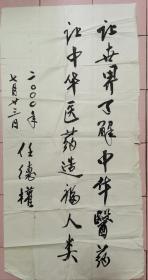 让世界了解中华醫药
让中华医药造福人类
二000年
七月廿三日
任德權